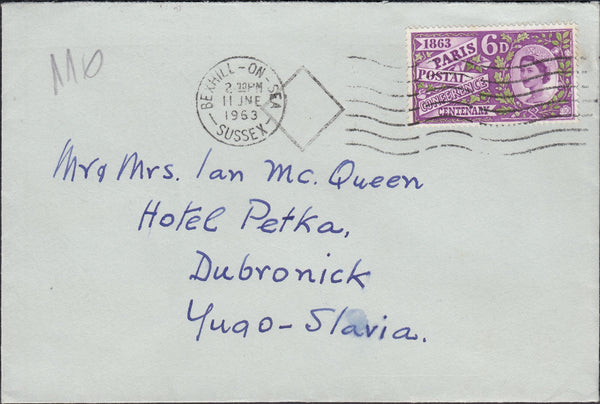 MO
1863
PARIS 6D
POSTAL
CONFERENCE
CENTENARY
BEXHILL-ON-SEA
2 30PM
11 JNE
1963
SUSSEX
Mr & Mrs. Ian Mc. Queen
Hotel Petka,
Dubronick
Yugo-Slavia.